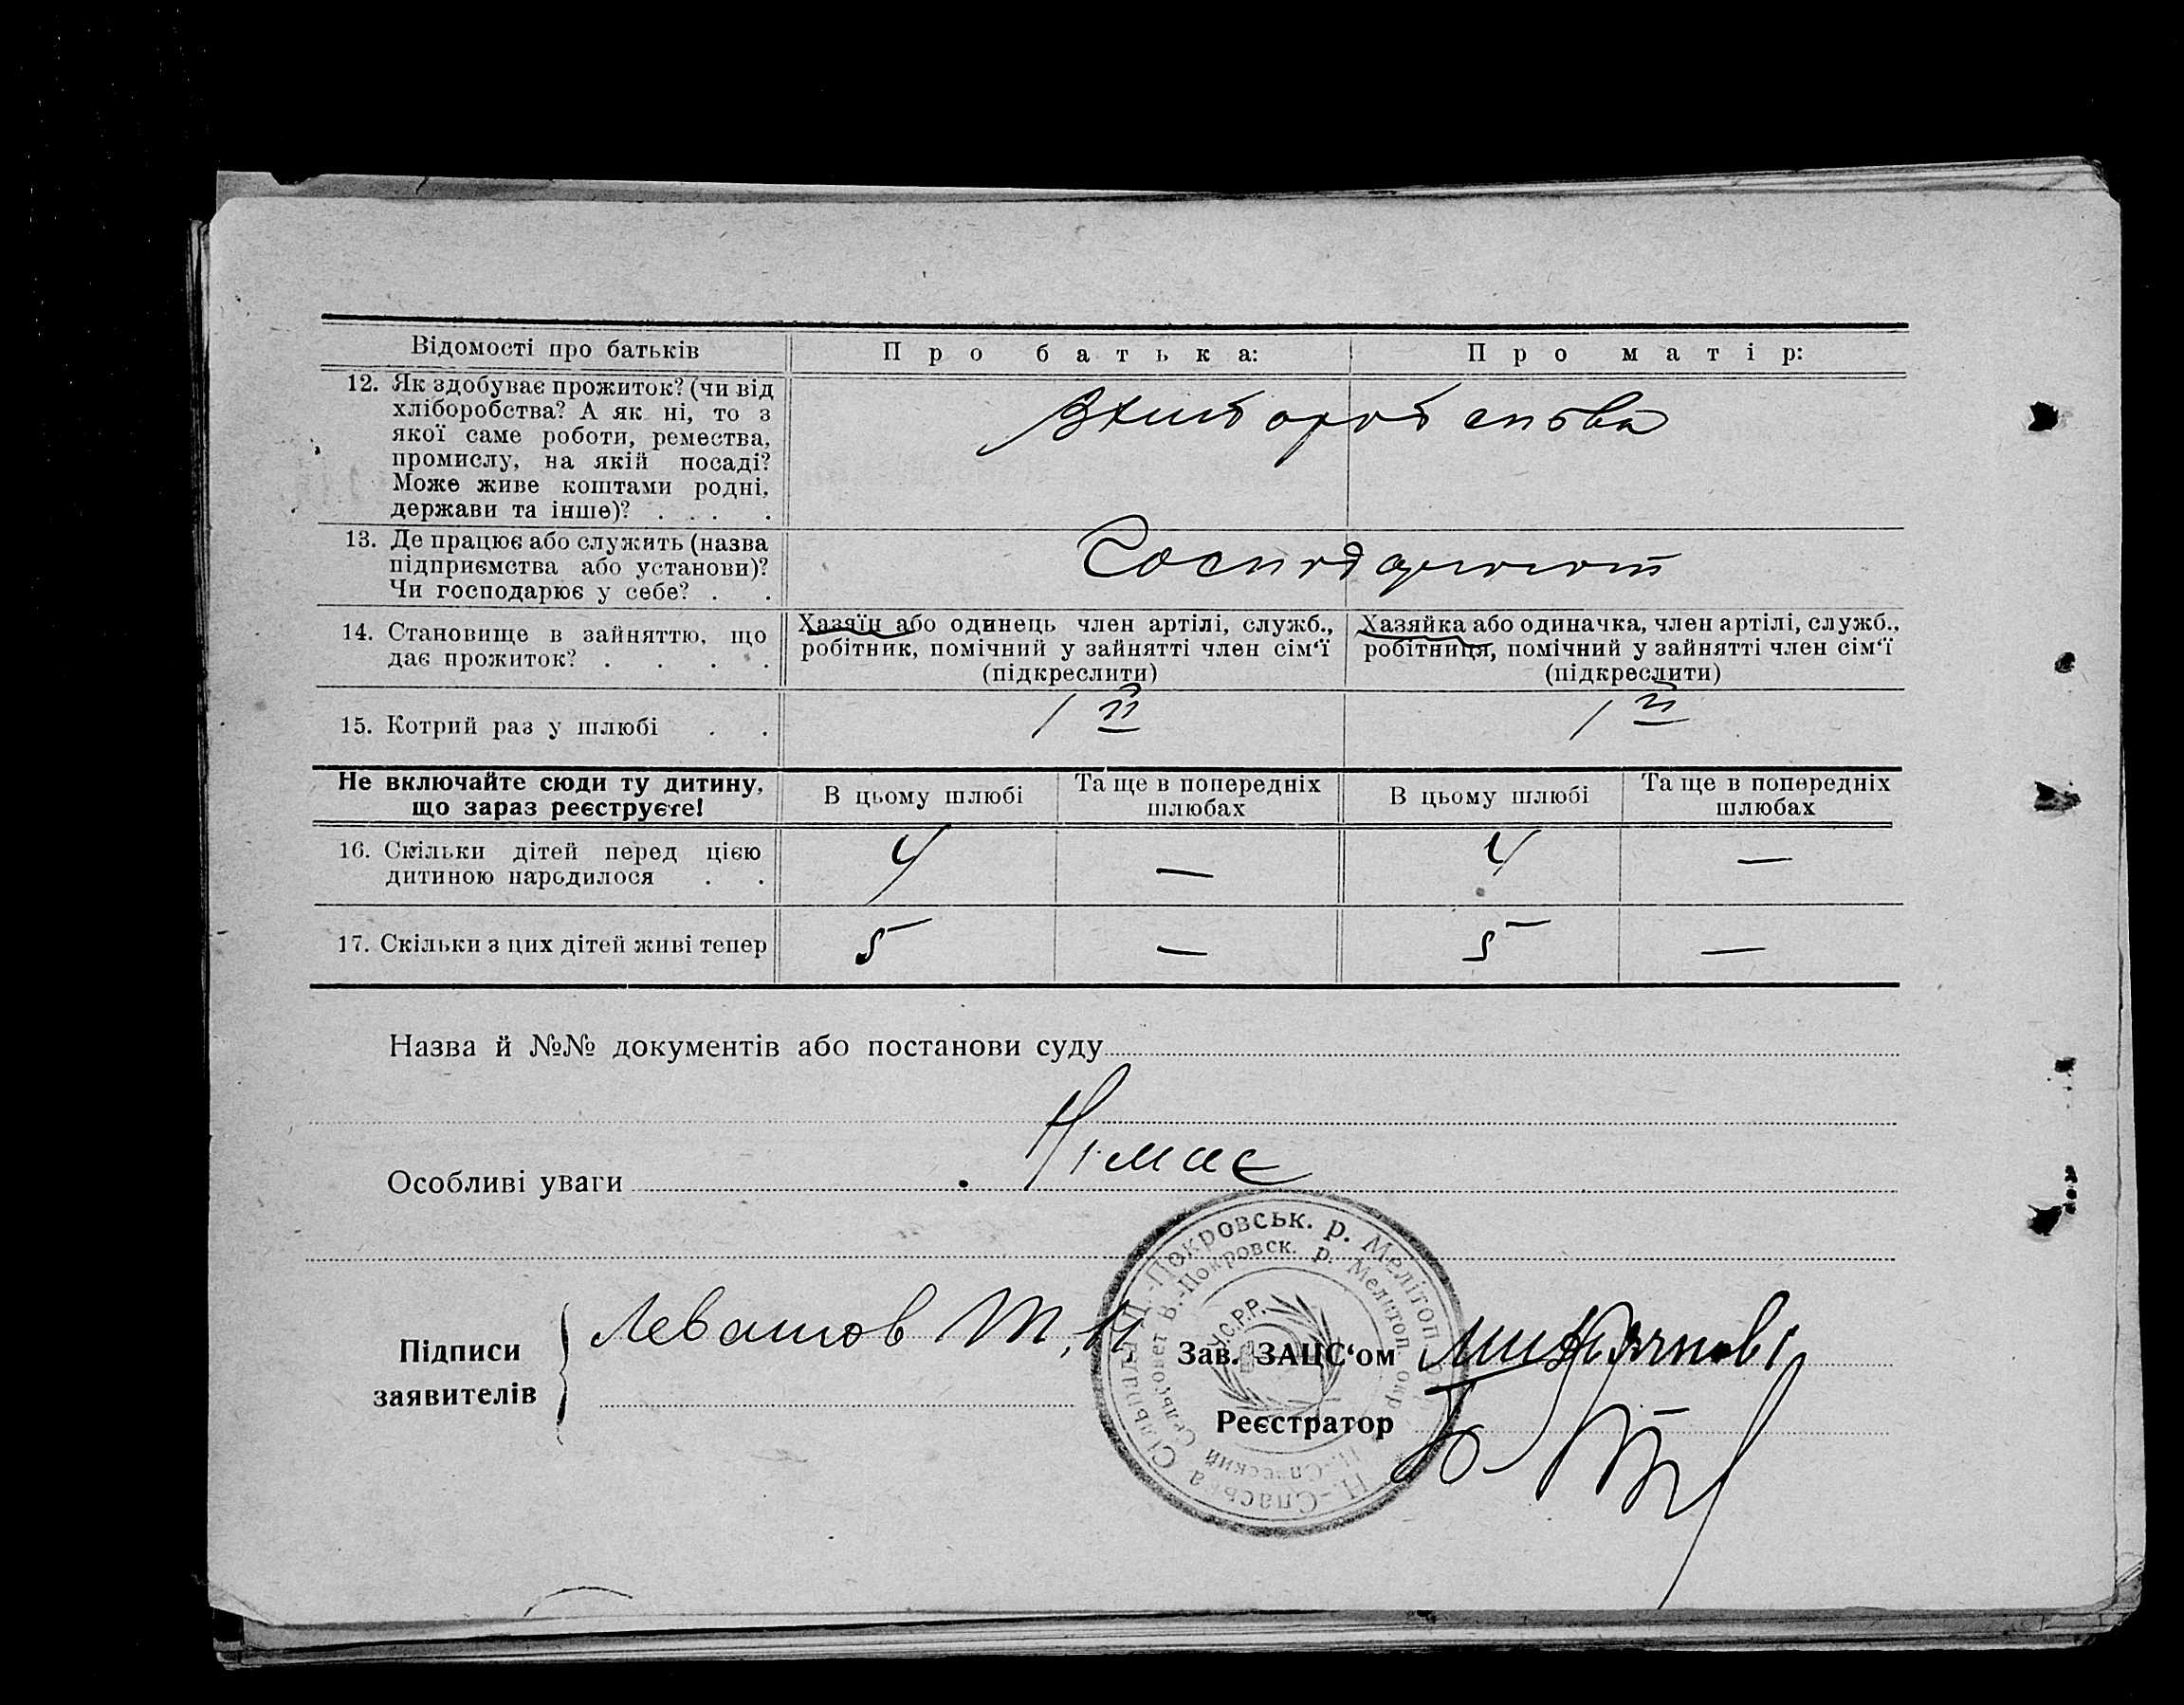 Відомості про батьків
Про батька:
Про матір:
12. Як здобуває прожиток? (чи від
хліборобства? А як ні, то з
якої саме роботи, ремества,
промислу, на якій посаді?
Може живе коштами родні,
держави та інше)? . . . .
Вхліборобства
13. Де працює або служить (назва
підприємства або установи)?
Чи господарює у себе? . .
14. Становище в зайняттю, що
дає прожиток? . . . .
Хазяїн або одинець член артілі, служб.,
робітник, помічний у зайнятті член сім‘ї
(підкреслити)
Хазяйка або одиначка, член артілі, служб.,
робітниця, помічний у зайнятті член сім‘ї
(підкреслити)
15. Котрий раз у шлюбі . .
1й
1й
Не включайте сюди ту дитину,
що зараз реєструєте!
В цьому шлюбі
Та ще в попередніх
шлюбах
В цьому шлюбі
Та ще в попередніх
шлюбах
16. Скільки дітей перед цією
дитиною народилося . .
4
—
4
—
17. Скільки з цих дітей живі тепер
5
—
5
—
Назва й №№ документів або постанови суду
Німає
Особливі уваги
Підписи
заявителів
Левашов Т. Н.
Зав. ЗАЦС‘ом
Реєстратор
Н.-Спаська Сільрада В.-Покровськ. р. Мелітоп.
Н.-Спасский Сельсовет В.-Покровск. р. Мелитоп. окр.
У.С.Р.Р.